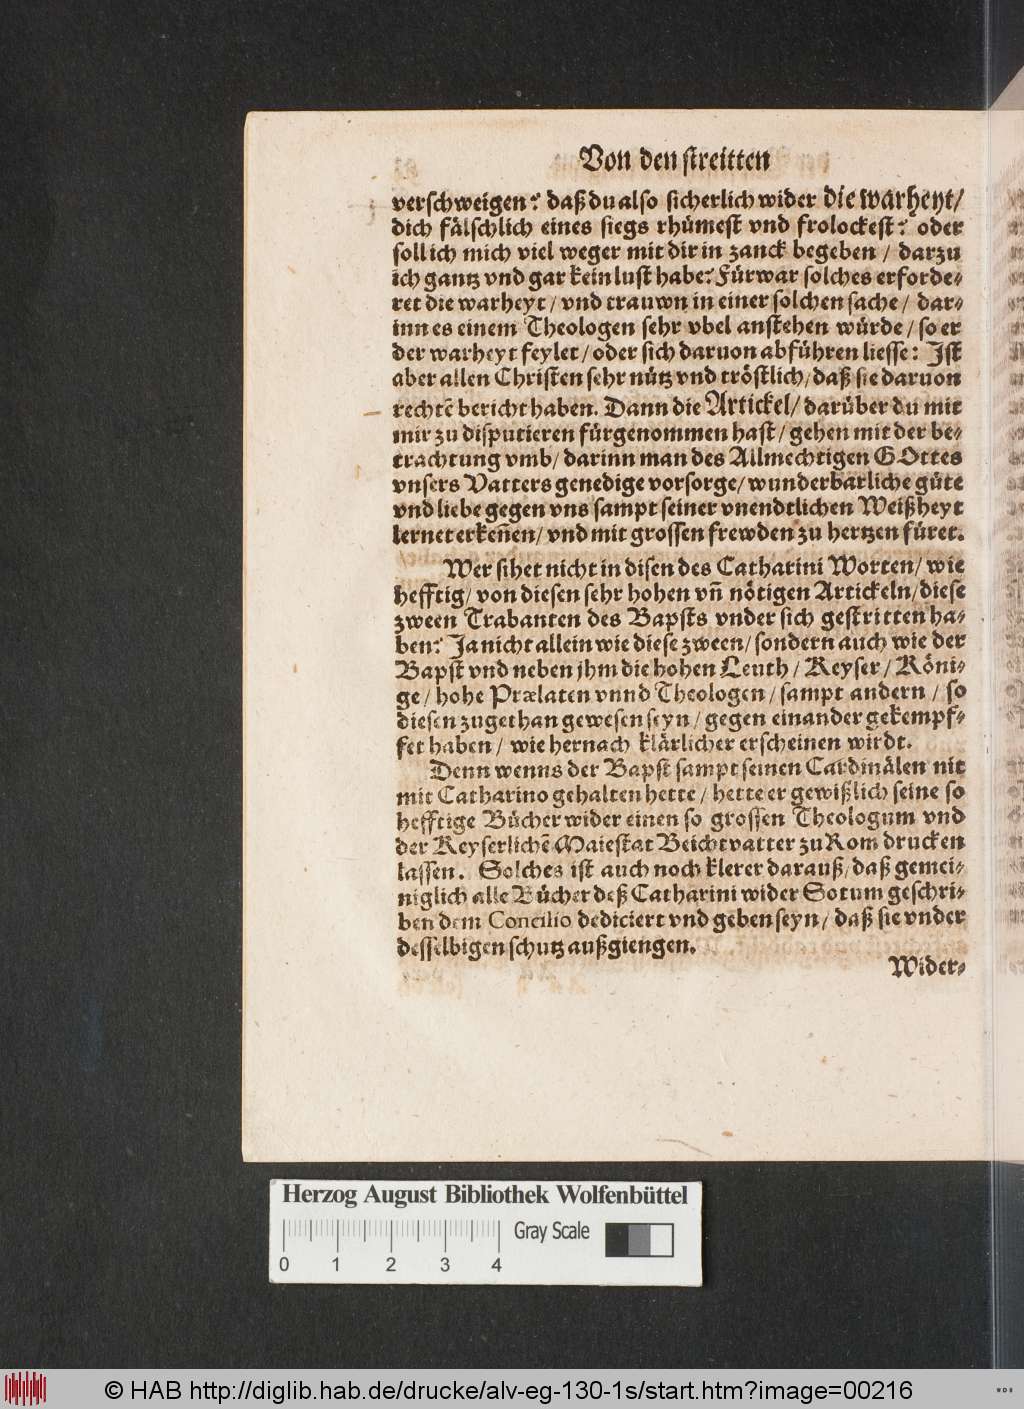 Von den streitten
verschweigen? daß du also sicherlich wider die warheyt/
dich fälschlich eines siegs rhümest vnd frolockest? oder
soll ich mich viel weger mit dir in zanck begeben / darzu
ich gantz vnd gar kein lust habe? Fürwar solches erforde-
ret die warheyt / vnd trauwn in einer solchen sache / dar-
inn es einem Theologen sehr vbel anstehen würde / so er
der warheyt feylet / oder sich daruon abführen liesse: Ist
aber allen Christen sehr nütz vnd tröstlich / daß sie daruon
rechtẽ bericht haben. Dann die Artickel / darüber du mit
mir zu disputieren fürgenommen hast / gehen mit der be-
trachtung vmb / darinn man des Allmechtigen GOttes
vnsers Vatters genedige vorsorge / wunderbarliche güte
vnd liebe gegen vns sampt seiner vnendtlichen Weißheyt
lernet erkeñen / vnd mit grossen frewden zu hertzen füret.
Wer sihet nicht in disen des Catharini Worten / wie
hefftig / von diesen sehr hohen vñ nötigen Artickeln / diese
zween Trabanten des Bapsts vnder sich gestritten ha-
ben? Ja nicht allein wie diese zween / sondern auch wie der
Bapst vnd neben jhm die hohen Leuth / Keyser / Köni-
ge / hohe Prælaten vnnd Theologen / sampt andern / so
diesen zugethan gewesen seyn / gegen einander gekempf-
fet haben / wie hernach klärlicher erscheinen wirdt.
Denn wenns der Bapst sampt seinen Cardinälen nit
mit Catharino gehalten hette / hette er gewißlich seine so
hefftige Bücher wider einen so grossen Theologum vnd
der Keyserlichẽ Maiestat Beichtvatter zu Rom drucken
lassen. Solches ist auch noch klerer darauß / daß gemei-
niglich alle Bücher deß Catharini wider Sotum geschri-
ben dem Concilio dediciert vnd geben seyn / daß sie vnder
desselbigen schutz außgiengen.
Wider-
Herzog August Bibliothek Wolfenbüttel
Gray Scale
0 1 2 3 4
© HAB http://diglib.hab.de/drucke/alv-eg-130-1s/start.htm?image=00216